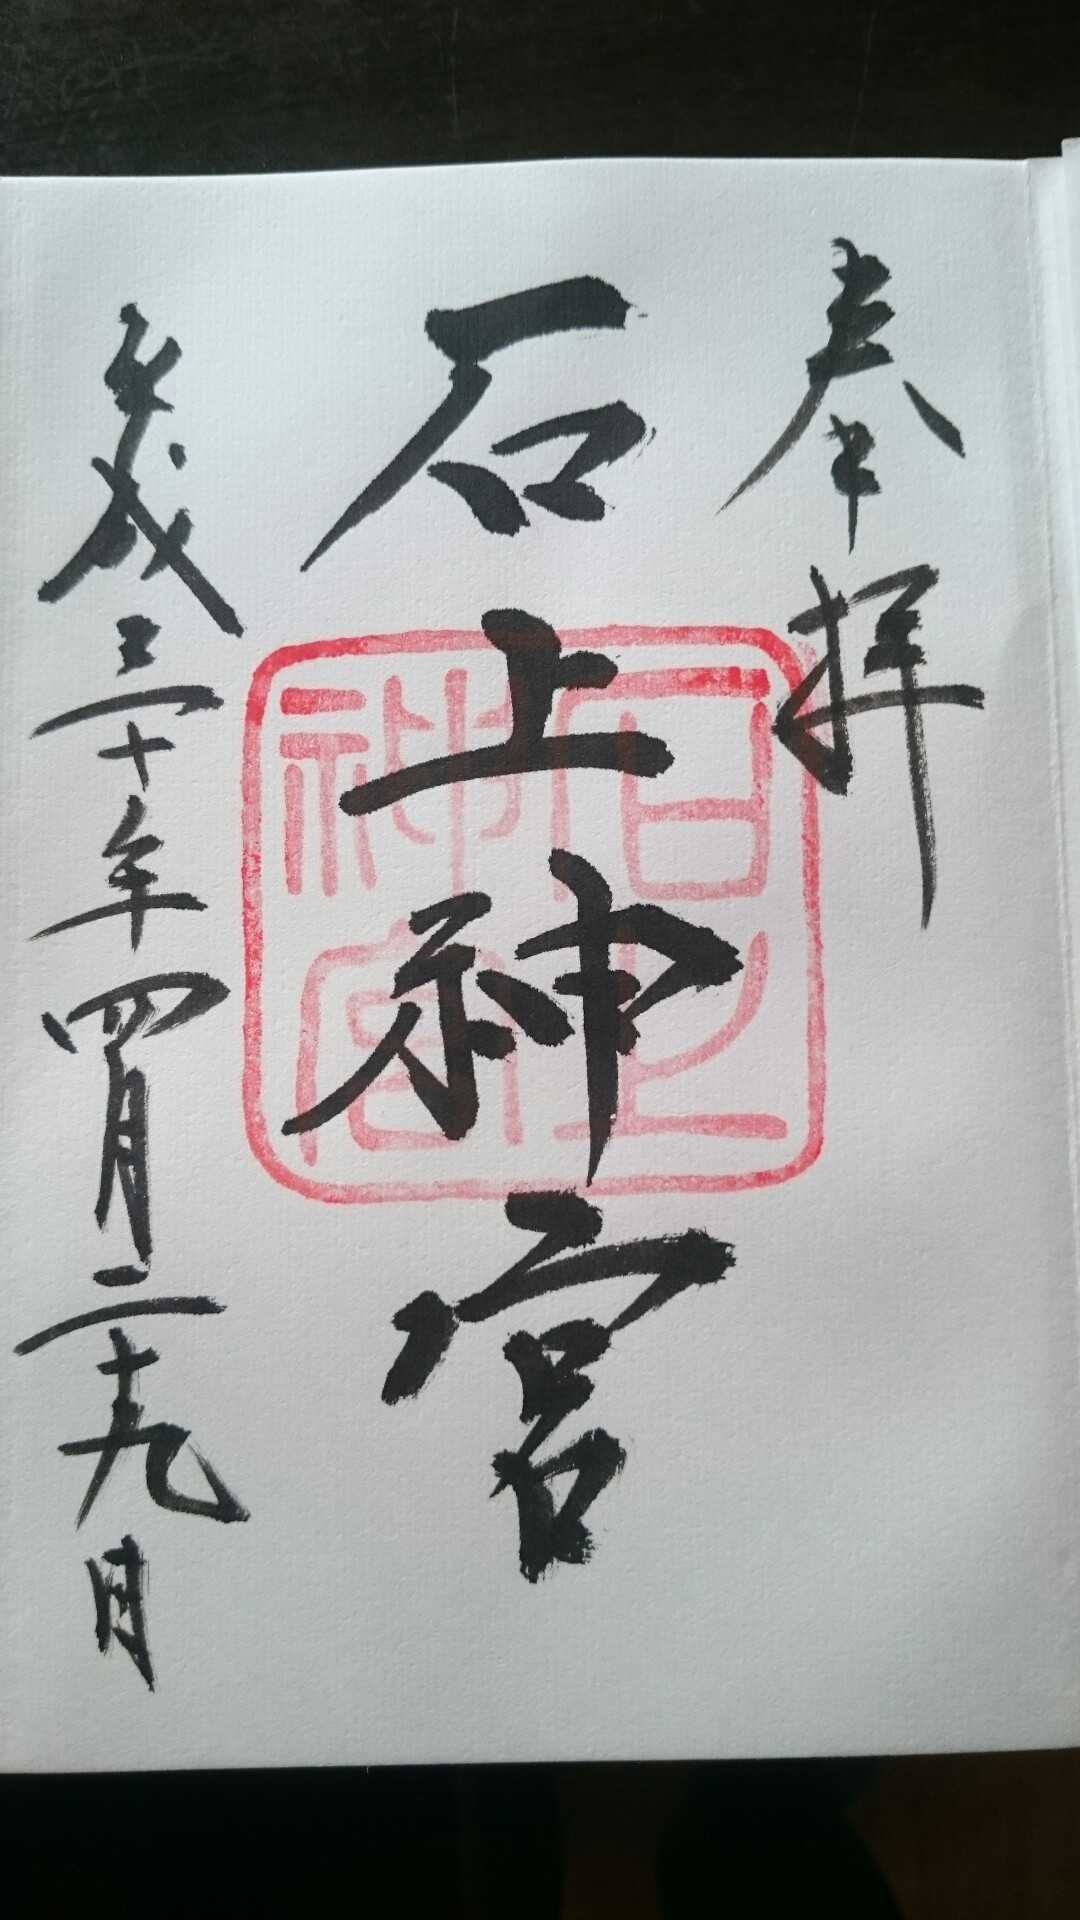 奉拝
石上神宮
石上神宮
平成三十年四月二十九日